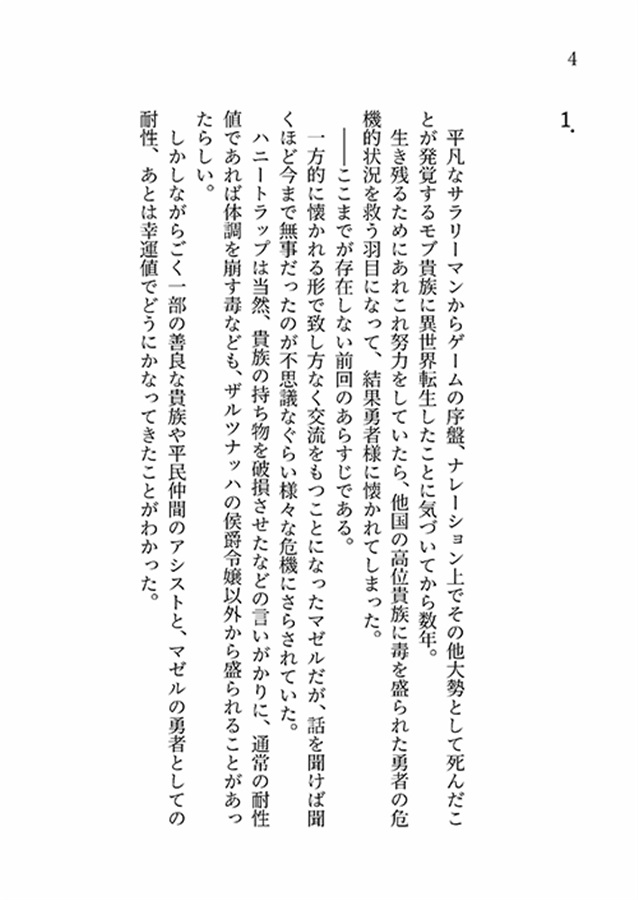 4
1.
平凡なサラリーマンからゲームの序盤、ナレーション上でその他大勢として死んだこ
とが発覚するモブ貴族に異世界転生したことに気づいてから数年。
生き残るためにあれこれ努力をしていたら、他国の高位貴族に毒を盛られた勇者の危
機的状況を救う羽目になって、結果勇者様に懐かれてしまった。
――ここまでが存在しない前回のあらすじである。
一方的に懐かれる形で致し方なく交流をもつことになったマゼルだが、話を聞けば聞
くほど今まで無事だったのが不思議なぐらい様々な危機にさらされていた。
ハニートラップは当然、貴族の持ち物を破損させたなどの言いがかりに、通常の耐性
値であれば体調を崩す毒なども、ザルツナッハの侯爵令嬢以外から盛られることがあっ
たらしい。
しかしながらごく一部の善良な貴族や平民仲間のアシストと、マゼルの勇者としての
耐性、あとは幸運値でどうにかなってきたことがわかった。